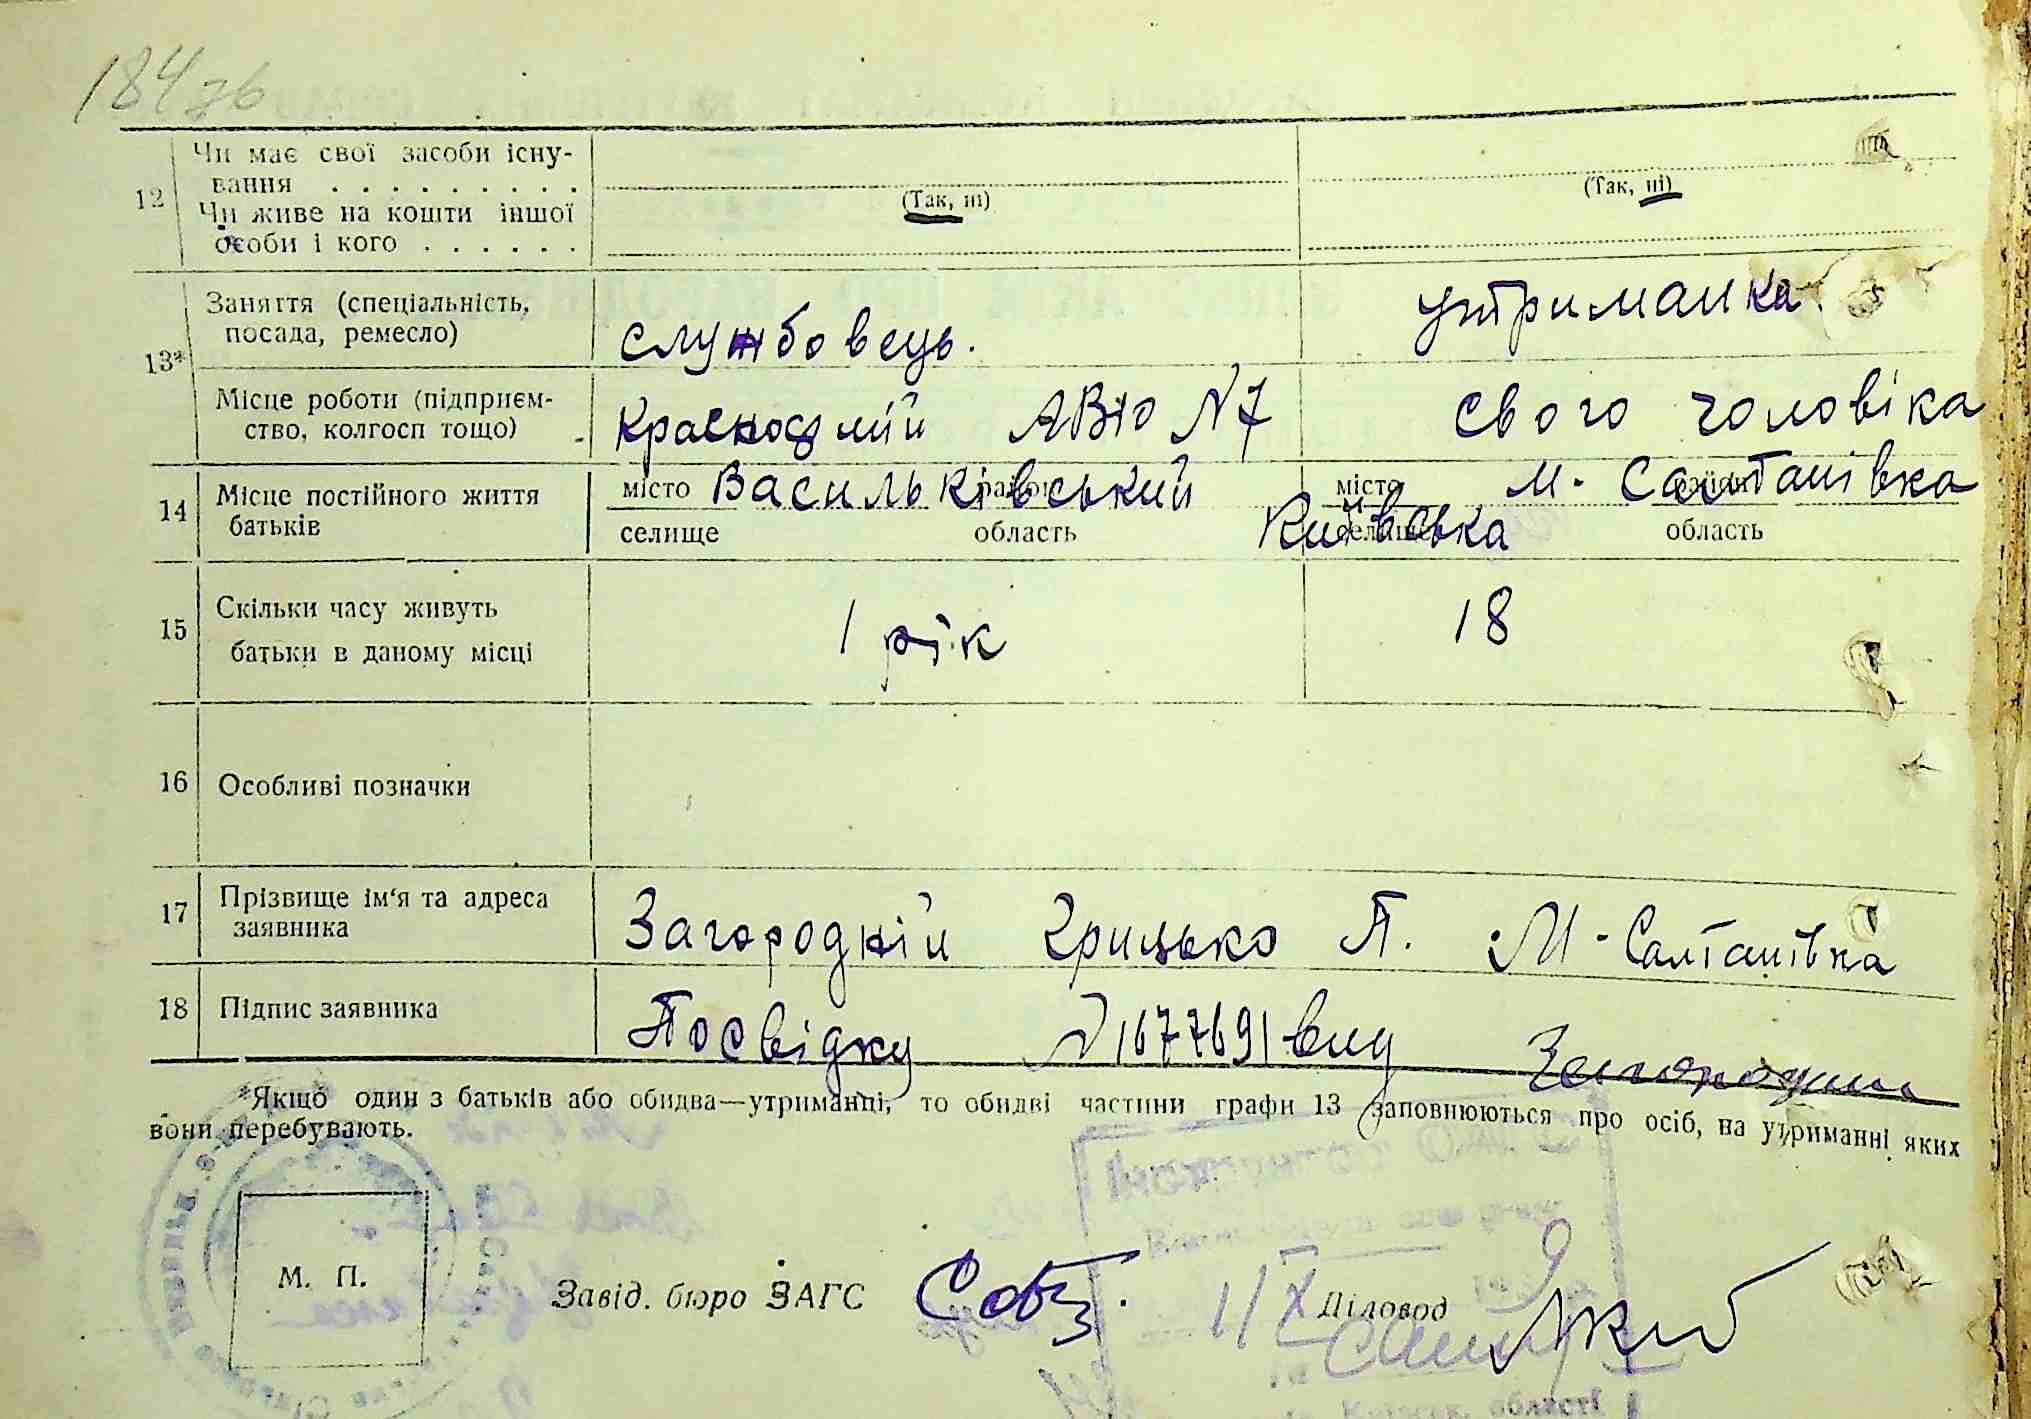 184зв
12 Чи має свої засоби існу-
вання . . . . . . . . . (Так, ні) (Так, ні)
Чи живе на кошти іншої
особи і кого . . . . . .
13* Заняття (спеціальність, утриманка.
посада, ремесло) службовець.
Місце роботи (підприєм- свого чоловіка
ство, колгосп тощо) АВІО N 7
14 Місце постійного життя місто Васильківський район місто М. Салтанівка район
батьків селище область Київська селище область
15 Скільки часу живуть 1 рік 18
батьки в даному місці
16 Особливі позначки
17 Прізвище ім'я та адреса Загородній Грицько П. М-Салтанівка
заявника
18 Підпис заявника Посвідку N 1677691 вид
*Якщо один з батьків або обидва—утриманці, то обидві частини графи 13 заповнюються про осіб, на утриманні яких
вони перебувають.
М. П.
Завід. бюро ЗАГС Діловод
області